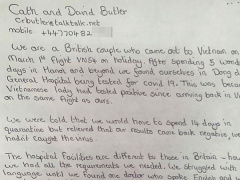 Cath and David Butler
crbutler@talktalk.net
mobile +447704482
We are a British couple who came out to Vietnam on
March 1st flight VN54 on holiday. After spending 5 wond
days in Hanoi and beyond we found ourselves in Dong D
General Hospital being tested for covid 19. This was becau
Vietnamese lady had tested positive since arriving back in V
on the same flight as ours.
We understood that we would have to spend 14 days in
quarantine but relieved that our results came back negative, we
hadn't caught the virus.
The hospital facilities are different to those in Britain - how
we had all the requirements we needed. We struggled with
language until we found one doctor who spoke English and